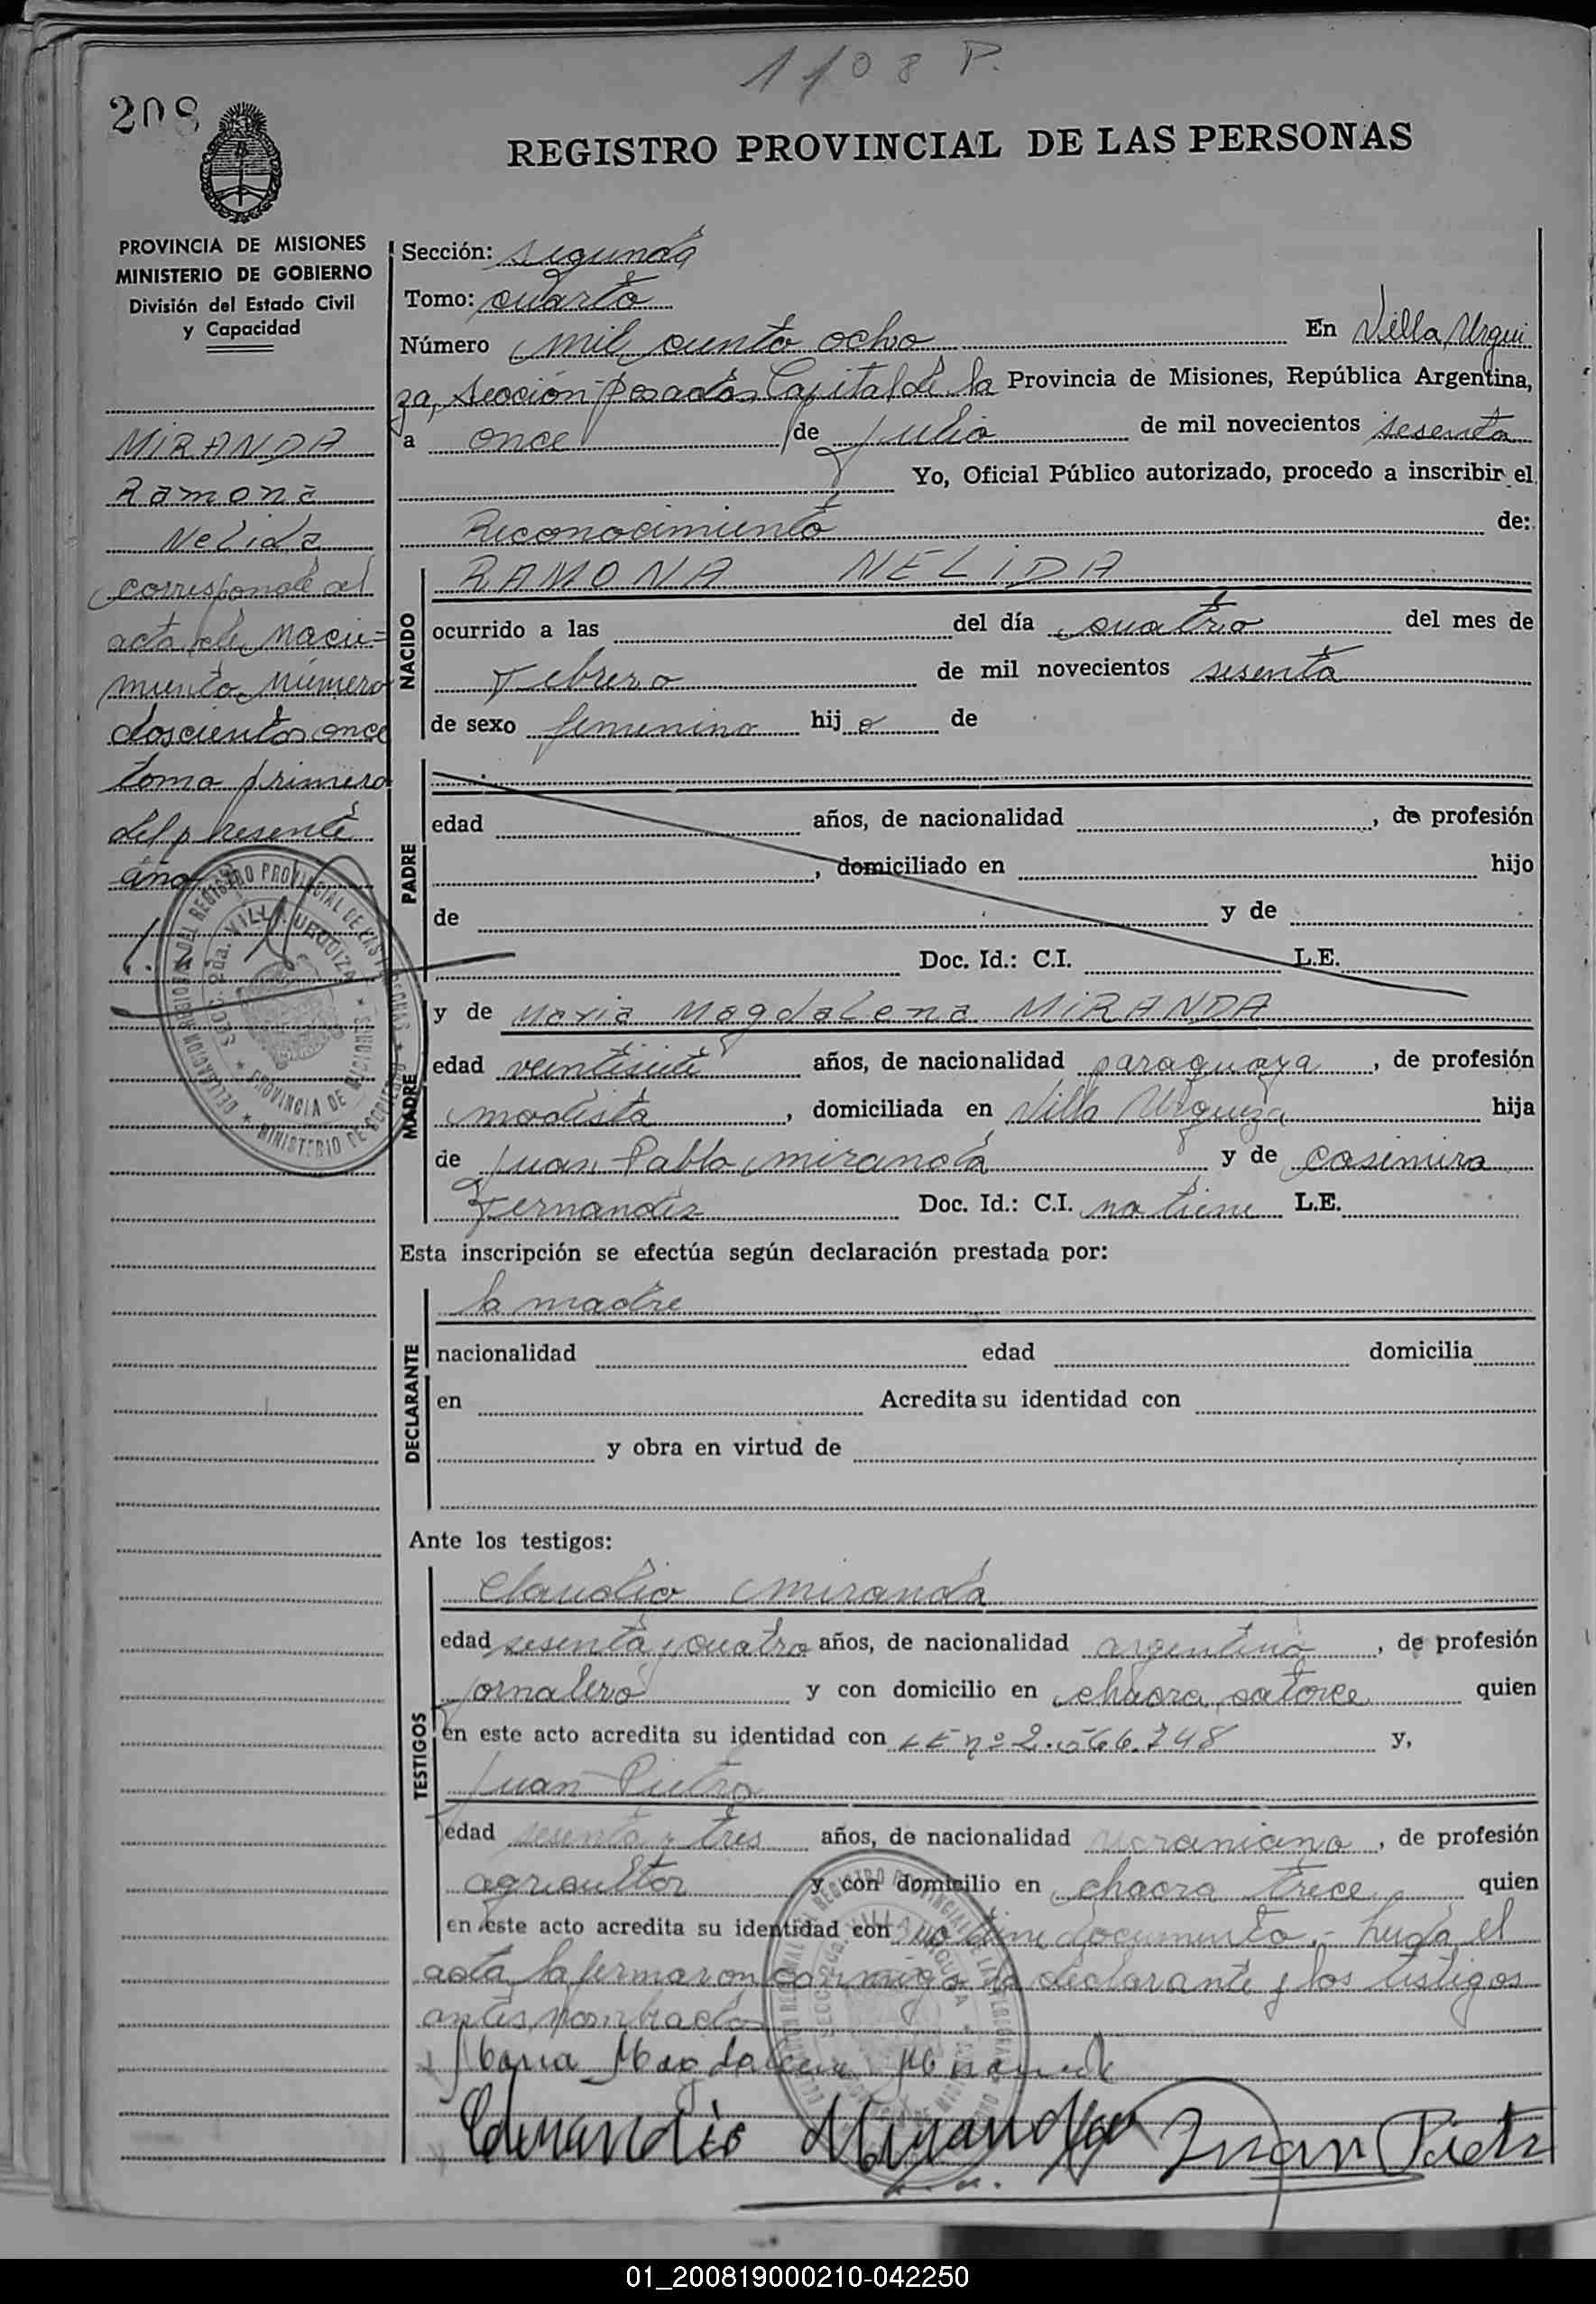 1108 P.
208
REGISTRO PROVINCIAL DE LAS PERSONAS
PROVINCIA DE MISIONES
MINISTERIO DE GOBIERNO
División del Estado Civil
y Capacidad
MIRANDA
Ramona
Nelida
corresponde al
acta de Naci=
miento número
doscientos once
tomo primero
del presente
año
DELEGACION REGIONAL DEL REGISTRO PROVINCIAL DE LAS PERSONAS * MINISTERIO DE GOBIERNO *
SECC. 2da. VILLA URQUIZA * PROVINCIA DE MISIONES *
Sección: segunda
Tomo: cuarto
Número mil ciento ocho En Villa Urqui
za, sección Posadas Capital de la Provincia de Misiones, República Argentina,
a once de julio de mil novecientos sesenta
Yo, Oficial Público autorizado, procedo a inscribir el
Reconocimiento de:
NACIDO
RAMONA NELIDA
ocurrido a las del día cuatro del mes de
Febrero de mil novecientos sesenta
de sexo femenino hij a de
PADRE
edad años, de nacionalidad , de profesión
, domiciliado en hijo
de y de
Doc. Id.: C.I. L.E.
MADRE
y de Maria Magdalena MIRANDA
edad veintisiete años, de nacionalidad paraguaya, de profesión
modista, domiciliada en Villa Urquiza hija
de Juan Pablo Miranda y de Casimira
Fernandez Doc. Id.: C.I. no tiene L.E.
Esta inscripción se efectúa según declaración prestada por:
DECLARANTE
la madre
nacionalidad edad domicilia
en Acredita su identidad con
y obra en virtud de
Ante los testigos:
TESTIGOS
Claudio Miranda
edad sesenta y cuatro años, de nacionalidad argentina, de profesión
jornalero y con domicilio en chacra catorce quien
en este acto acredita su identidad con LE nº 2.566.748 y,
Juan Pietro
edad sesenta y tres años, de nacionalidad ucraniana, de profesión
agricultor y con domicilio en chacra trece quien
en este acto acredita su identidad con no tiene documento.- Leida el
acta, la firmaron conmigo la declarante y los testigos
antes nombrados
Maria Magdalena Miranda
Claudio Miranda Juan Pietr
01_200819000210-042250